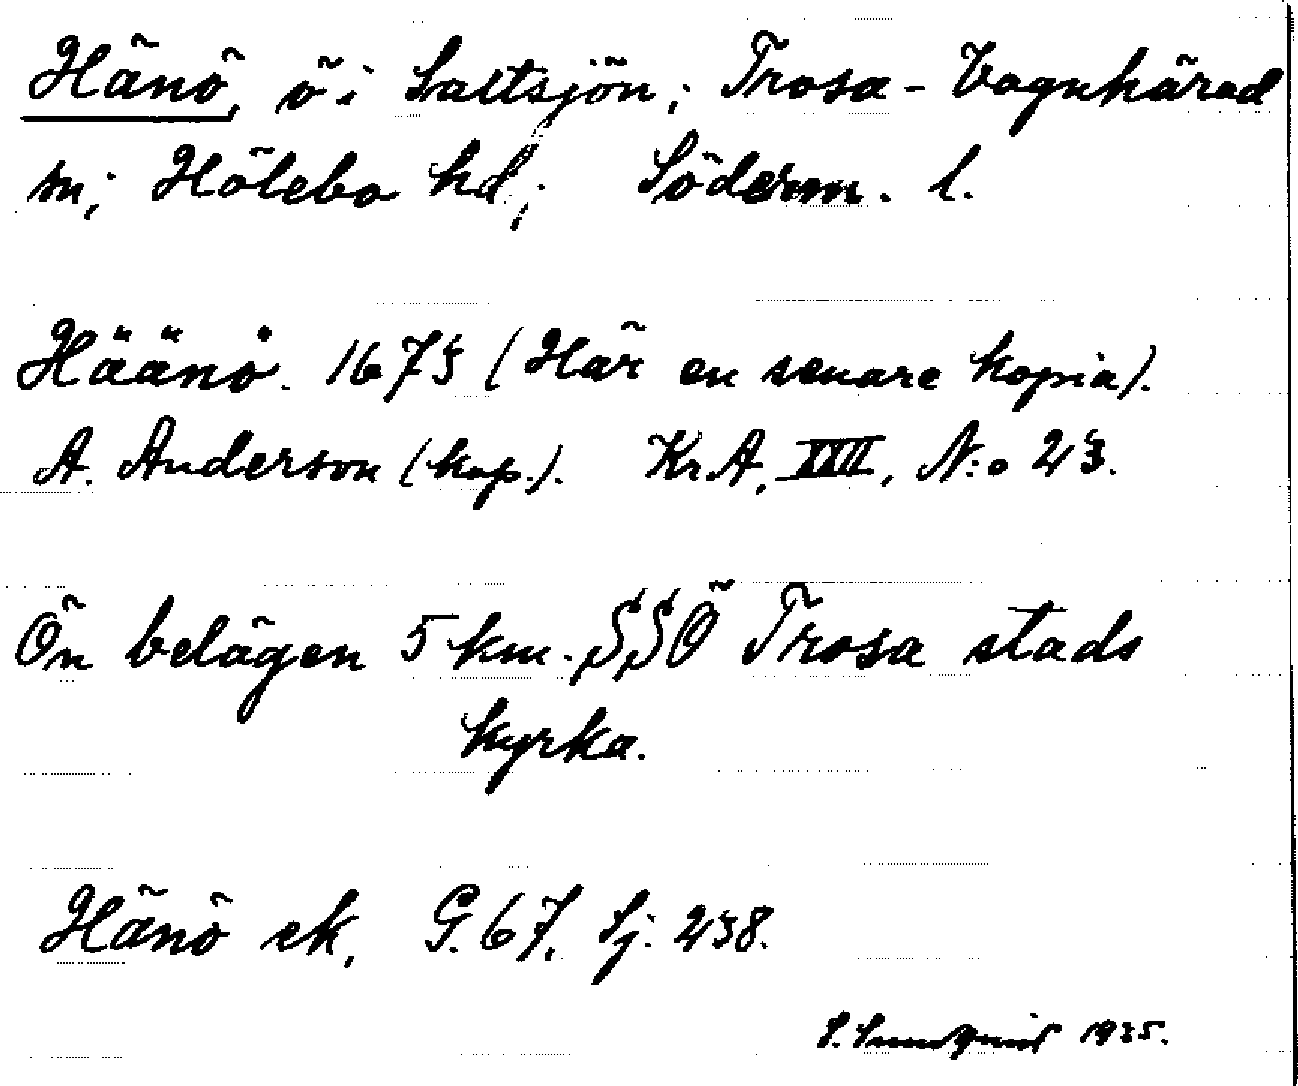 Hänö, ö i Saltsjön; Trosa-Vagnhärad
sn; Hölebo hd; Söderm. l.
Häänö. 1675 (Här en senare kopia).
A. Anderson (kop.). Kr.A, XVII, N:o 23.
Ön belägen 5 km. SSÖ Trosa stads
kyrka.
Hänö ek, G. 67. Sj. 238.
S. Sundquist 1935.